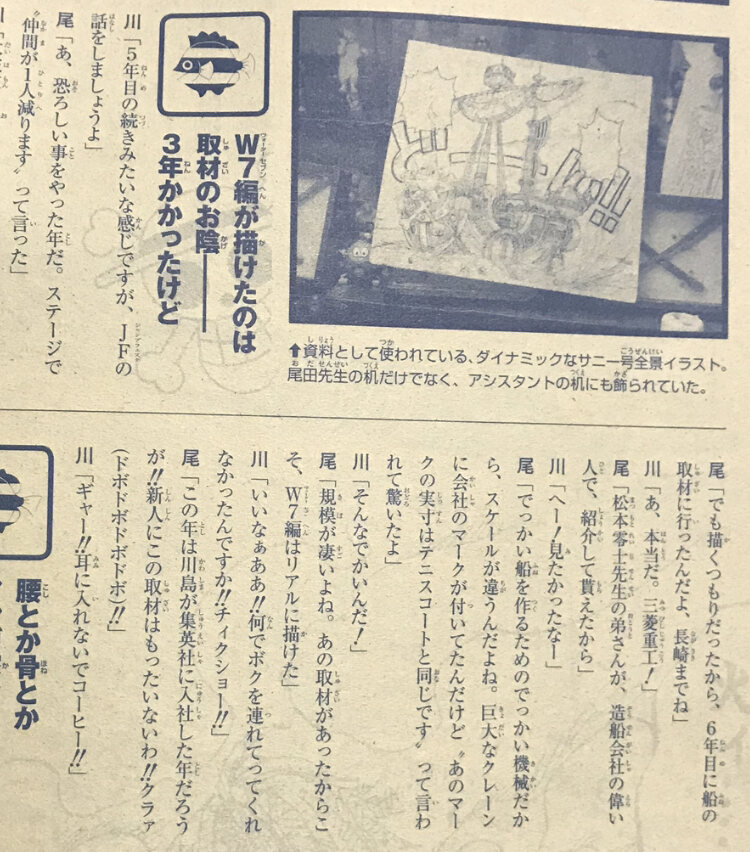 ↑資料として使われている、ダイナミックなサニー号全景イラスト。
尾田先生の机だけでなく、アシスタントの机にも飾られていた。
W7編が描けたのは
取材のお陰――
3年かかったけど
川「5年目の続きみたいな感じですが、JFの
話をしましょうよ」
尾「あ、恐ろしい事をやった年だ。ステージで
〝仲間が1人減ります〟って言った」
尾「でも描くつもりだったから、6年目に船の
取材に行ったんだよ、長崎までね」
川「あ、本当だ。三菱重工！」
尾「松本零士先生の弟さんが、造船会社の偉い
人で、紹介して貰えたから」
川「へー！見たかったなー」
尾「でっかい船を作るためのでっかい機械だか
ら、スケールが違うんだよね。巨大なクレーン
に会社のマークが付いてたんだけど〝あのマー
クの実寸はテニスコートと同じです〟って言わ
れて驚いたよ」
川「そんなでかいんだ！」
尾「規模が凄いよね。あの取材があったからこ
そ、W7編はリアルに描けた」
川「いいなぁああ!!何でボクを連れてってくれ
なかったんですか!!チィクショー!!」
尾「この年は川島が集英社に入社した年だろう
が!!新人にこの取材はもったいないわ!!クラァ
(ドボドボドボドボ)!!」
川「ギャー!!耳に入れないでコーヒー!!」
腰とか骨とか